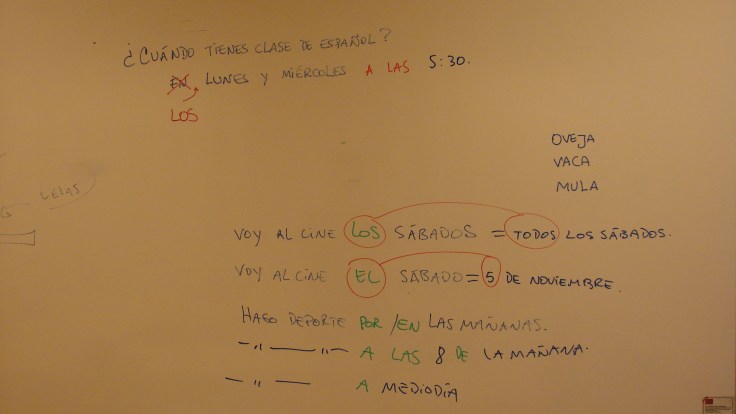 ¿CUÁNDO TIENES CLASE DE ESPAÑOL?
EN LUNES Y MIÉRCOLES A LAS 5:30.
LOS
OVEJA
VACA
MULA
LEJAS
VOY AL CINE LOS SÁBADOS = TODOS LOS SÁBADOS.
VOY AL CINE EL SÁBADO = 5 DE NOVIEMBRE.
HAGO DEPORTE POR /EN LAS MAÑANAS.
-"——"- A LAS 8 DE LA MAÑANA.
— " — A MEDIODÍA